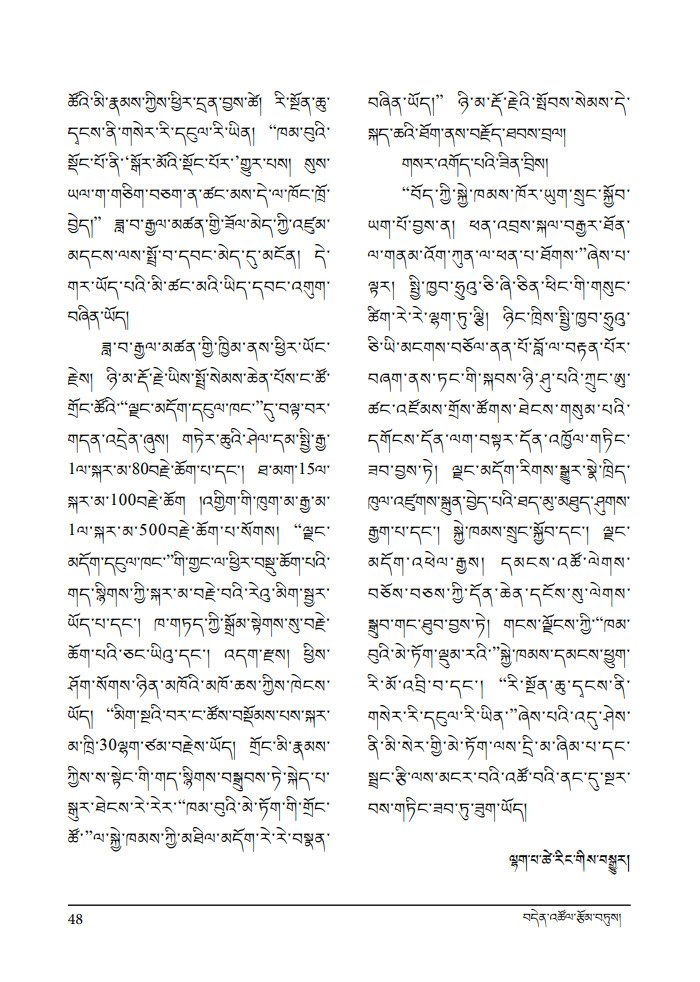 ཚོའི་མི་རྣམས་ཀྱིས་ཕྱིར་དྲན་བྱས་ཚེ། རི་སྔོན་ཆུ་
དྭངས་ནི་གསེར་རི་དངུལ་རི་ཡིན། “ཁམ་བུའི་
སྡོང་པོ་ནི་‘སྒོར་མོའི་སྡོང་པོར་’གྱུར་པས། སུས་
ཡལ་ག་གཅིག་བཅག་ན་ཚང་མས་དེ་ལ་ཁོང་ཁྲོ་
བྱེད།” ཟླ་བ་རྒྱལ་མཚན་གྱི་ཟོལ་མེད་ཀྱི་འཛུམ་
མདངས་ལས་སྤྲོ་བ་དབང་མེད་དུ་མངོན། དེ་
གར་ཡོད་པའི་མི་ཚང་མའི་ཡིད་དབང་འགུག་
བཞིན་ཡོད།
ཟླ་བ་རྒྱལ་མཚན་གྱི་ཁྱིམ་ནས་ཕྱིར་ཡོང་
རྗེས། ཉི་མ་རྡོ་རྗེ་ཡིས་སྤྲོ་སེམས་ཆེན་པོས་ང་ཚོ་
གྲོང་ཚོའི་“ལྗང་མདོག་དངུལ་ཁང་”དུ་བལྟ་བར་
གདན་འདྲེན་ཞུས། གཏེར་ཆུའི་ཤེལ་དམ་སྤྱི་རྒྱ་
1ལ་སྐར་མ་80བརྗེ་ཆོག་པ་དང་། ཐ་མག་15ལ་
སྐར་མ་100བརྗེ་ཆོག །འགྱིག་གི་ཁུག་མ་རྒྱ་མ་
1ལ་སྐར་མ་500བརྗེ་ཆོག་པ་སོགས། “ལྗང་
མདོག་དངུལ་ཁང་”གི་གྱང་ལ་ཕྱིར་བསྡུ་ཆོག་པའི་
གད་སྙིགས་ཀྱི་སྐར་མ་བརྗེ་བའི་རེའུ་མིག་སྦྱར་
ཡོད་པ་དང་། ཁ་གཏད་ཀྱི་སྒྲོམ་སྟེགས་སུ་བརྗེ་
ཆོག་པའི་ཅང་ཡིའུ་དང་། འདག་རྫས། ཕྱིས་
ཤོག་སོགས་ཉིན་མཁོའི་མཁོ་ཆས་ཀྱིས་ཁེངས་
ཡོད། “མིག་སྔའི་བར་ང་ཚོས་བསྡོམས་པས་སྐར་
མ་ཁྲི་30ལྷག་ཙམ་བརྗེས་ཡོད། གྲོང་མི་རྣམས་
ཀྱིས་ས་སྟེང་གི་གད་སྙིགས་བསྒྲུབས་ཏེ་སྐེད་པ་
སྒུར་ཐེངས་རེ་རེར་“ཁམ་བུའི་མེ་ཏོག་གི་གྲོང་
ཚོ་”ལ་སྐྱེ་ཁམས་ཀྱི་མཐིལ་མདོག་རེ་རེ་བསྣན་
བཞིན་ཡོད།” ཉི་མ་རྡོ་རྗེའི་སྤོབས་སེམས་དེ་
སྐད་ཆའི་ཐོག་ནས་བརྗོད་ཐབས་བྲལ།
གསར་འགོད་པའི་ཟིན་བྲིས།
“བོད་ཀྱི་སྐྱེ་ཁམས་ཁོར་ཡུག་སྲུང་སྐྱོབ་
ཡག་པོ་བྱས་ན། ཕན་འབྲས་སྐལ་བརྒྱར་ཐོན་
ལ་གནམ་འོག་ཀུན་ལ་ཕན་པ་ཐོགས་”ཞེས་པ་
ལྟར། སྤྱི་ཁྱབ་ཧྲུའུ་ཅི་ཞི་ཅིན་ཕིང་གི་གསུང་
ཚིག་རེ་རེ་ལྷག་ཏུ་ལྕི། ཉིང་ཁྲིས་སྤྱི་ཁྱབ་ཧྲུའུ་
ཅི་ཡི་མངགས་བཅོལ་ནན་པོ་བློ་ལ་བརྟན་པོར་
བཞག་ནས་ཏང་གི་སྐབས་ཉི་ཤུ་པའི་ཀྲུང་ཨུ་
ཚང་འཛོམས་གྲོས་ཚོགས་ཐེངས་གསུམ་པའི་
དགོངས་དོན་ལག་བསྟར་དོན་འཁྱོལ་གཏིང་
ཟབ་བྱས་ཏེ། ལྗང་མདོག་རིགས་སྒྱུར་སྣེ་ཁྲིད་
ཁུལ་འཛུགས་སྐྲུན་བྱེད་པའི་ཐད་མུ་མཐུད་ཤུགས་
རྒྱག་པ་དང་། སྐྱེ་ཁམས་སྲུང་སྐྱོབ་དང་། ལྗང་
མདོག་འཕེལ་རྒྱས། དམངས་འཚོ་ལེགས་
བཅོས་བཅས་ཀྱི་དོན་ཆེན་དངོས་སུ་ལེགས་
སྒྲུབ་གང་ཐུབ་བྱས་ཏེ། གངས་ལྗོངས་ཀྱི་“ཁམ་
བུའི་མེ་ཏོག་ལྡུམ་རའི་”སྐྱེ་ཁམས་དམངས་ཕྱུག་
རི་མོ་འབྲི་བ་དང་། “རི་སྔོན་ཆུ་དྭངས་ནི་
གསེར་རི་དངུལ་རི་ཡིན་”ཞེས་པའི་འདུ་ཤེས་
ནི་མི་སེར་གྱི་མེ་ཏོག་ལས་དྲི་མ་ཞིམ་པ་དང་
སྦྲང་རྩི་ལས་མངར་བའི་འཚོ་བའི་ནང་དུ་སྔར་
བས་གཏིང་ཟབ་ཏུ་ཟུག་ཡོད།
ལྷག་པ་ཚེ་རིང་གིས་བསྒྱུར།
48
བདེན་འཚོལ་རྩོམ་བཏུས།